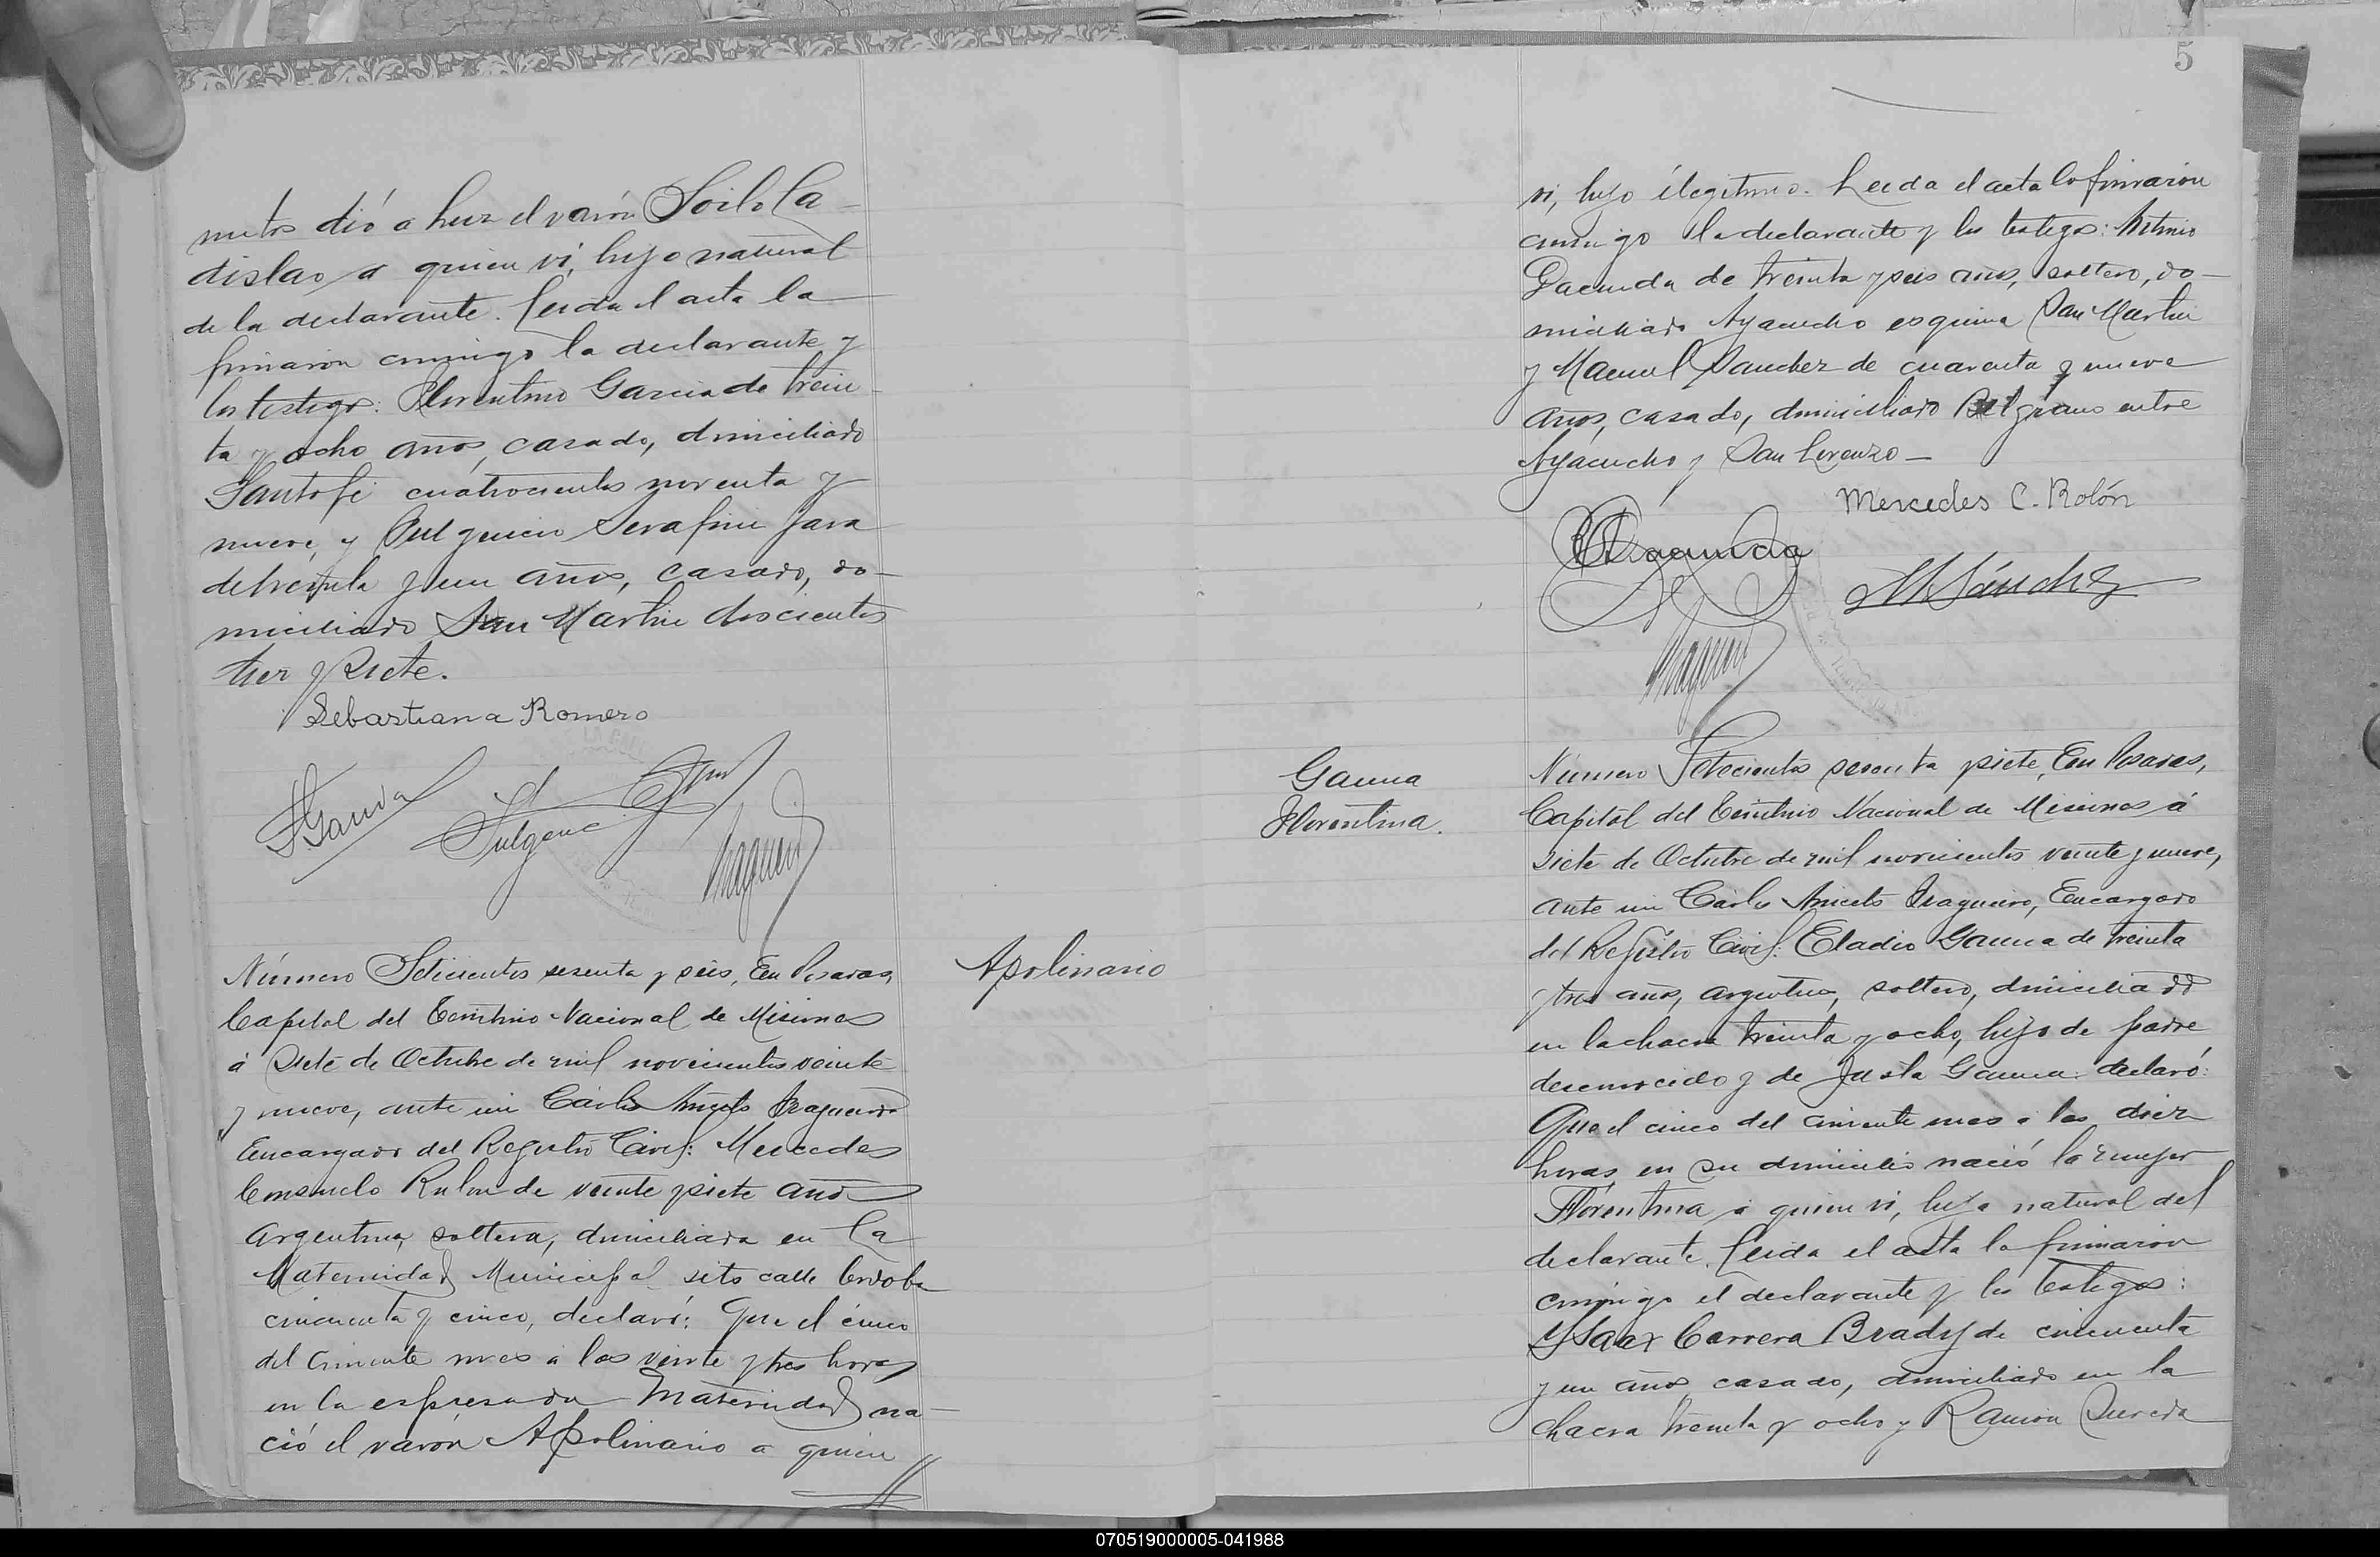 nutos dió a luz el varón Soilo La-
dislao a quien vi, hijo natural
de la declarante. Leida el acta la
firmaron conmigo la declarante y
los testigos: Florentino Garcia de trein-
ta y ocho años, casado, domiciliado
Santa fé cuatrocientos noventa y
nueve, y Fulgencio Serafin Jara
de treinta y un años, casado, do-
miciliado San Martin doscientos
diez y siete.
Sebastiana Romero
F Garcia
Fulgenc
Número Setecientos sesenta y seis, En Posadas,
Capital del Territorio Nacional de Misiones
á siete de Octubre de mil novecientos veinte
y nueve, ante mi Carlos Aniceto Fragueiro
Encargado del Registro Civil: Mercedes
Consuelo Rolon de veinte y siete años
argentina, soltera, domiciliada en la
Maternidad Municipal sito calle Cordoba
cincuenta y cinco, declaró: Que el cinco
del corriente mes a las veinte y tres horas
en la espresada Maternidad na-
ció el varón Apolinario a quien
Apolinario
5
vi, hijo ilegitimo. Leida el acta la firmaron
conmigo la declarante y los testigos:
de treinta y seis años, soltero, do-
miciliado Ayacucho esquina San Martin
y Manuel Sanchez de cuarenta y nueve
años, casado, domiciliado Belgrano entre
Ayacucho y San Lorenzo -
Mercedes C. Rolón
M Sánchez
Gauna
Florentina.
Número Setecientos sesenta y siete, En Posadas,
Capital del Territorio Nacional de Misiones á
siete de Octubre de mil novecientos veinte y nueve,
ante mi Carlos Aniceto Fragueiro, Encargado
del Registro Civil: Eladio Gauna de treinta
y tres años, argentino, soltero, domiciliado
en la chacra treinta y ocho, hijo de padre
desconocido y de Justa Gauna: declaró:
Que el cinco del corriente mes a las diez
horas, en su domicilio nació la mujer
Florentina a quien vi, hija natural del
declarante. Leida el acta la firmaron
conmigo el declarante y los testigos:
Ysaax Carrera Brady de cincuenta
y un años, casado, domiciliado en la
chacra treinta y ocho y Ramón
070519000005-041988